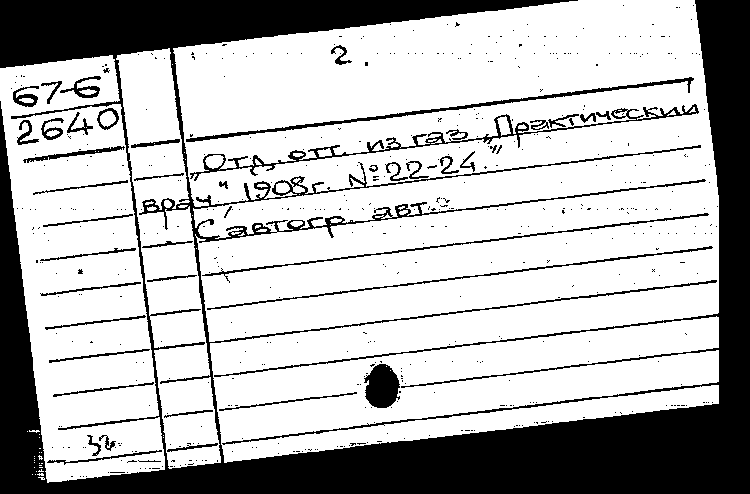 2.
67-6
2640
„Отд. отт. из газ „Практический
врач", 1908 г. №22-24."
С автогр. авт.